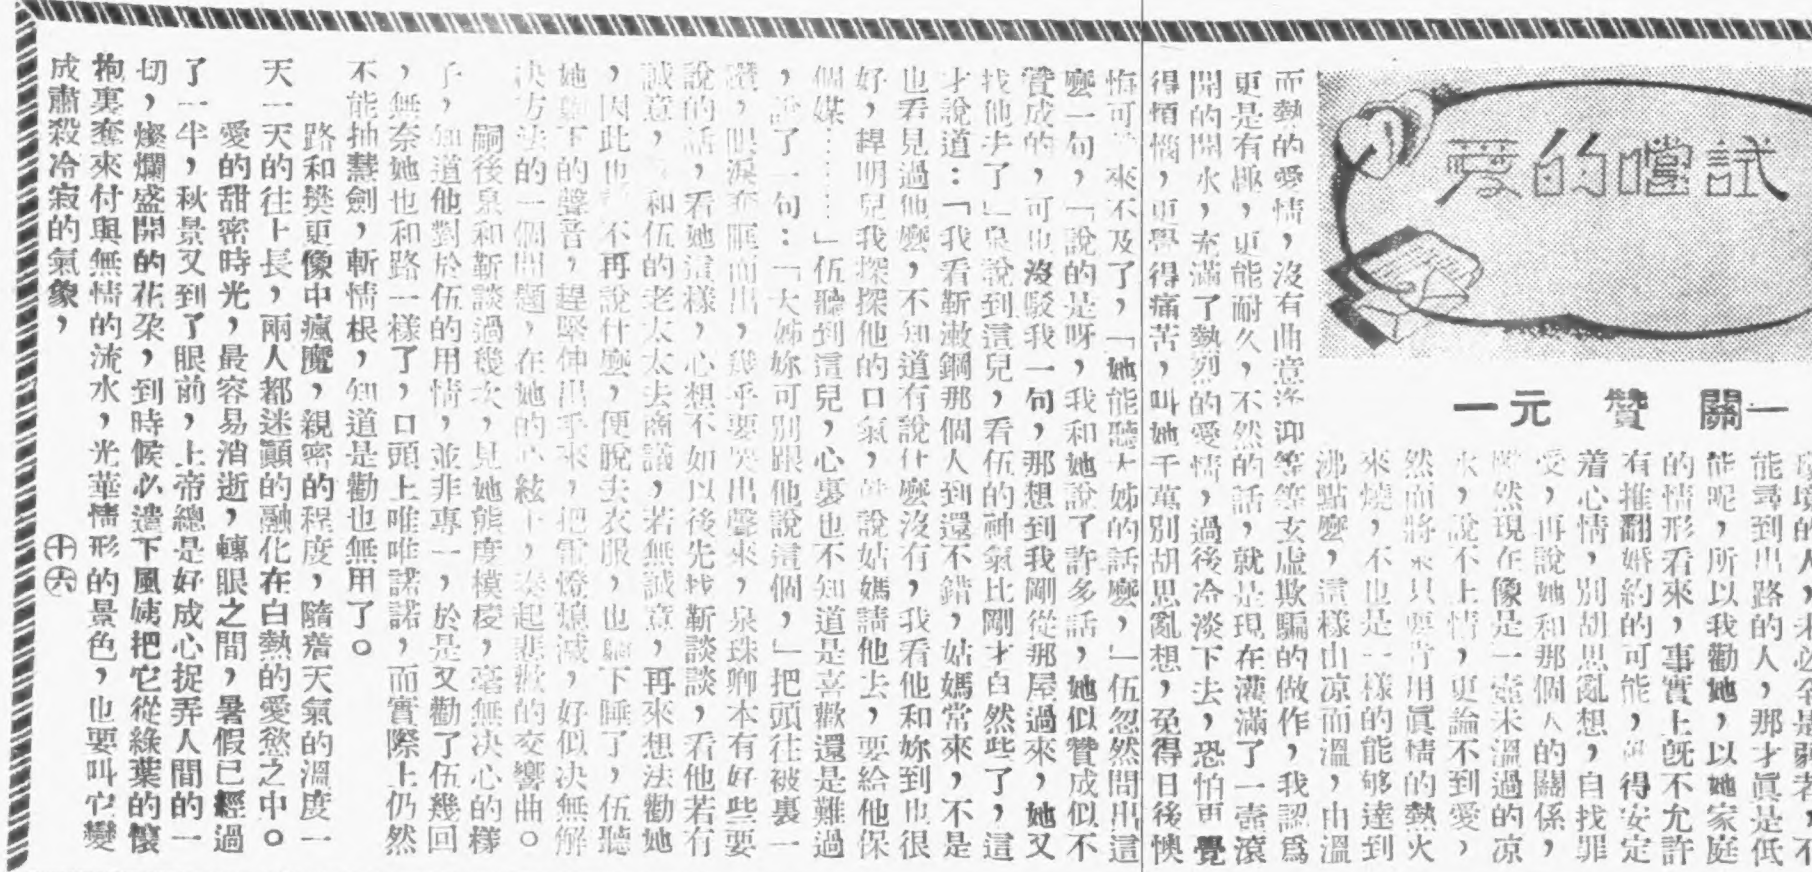 愛的嚐試
一元　贊　關一
能尋到出路的人，那才眞是低
能呢，所以我勸她，以她家庭
的情形看來，事實上旣不允許
有推翻婚約的可能，得安定
着心情，別胡思亂想，自找罪
受，再說她和那個人的關係，
然現在像是一壺未溫過的凉
水，說不上情，更論不到愛，
然而將來只要肯用眞情的熱火
來燒，不也是一樣的能够達到
沸點麼，這樣由凉而溫，由溫
而熱的愛情，沒有曲意逢迎等等玄虛欺騙的做作，我認爲
更是有趣，更能耐久，不然的話，就是現在灌滿了一壺滾
開的開水，充滿了熱烈的愛情，過後冷淡下去，恐怕更覺
得煩惱，更覺得痛苦，叫她千萬別胡思亂想，免得日後懊
悔可來不及了，「她能聽大姊的話麼，」伍忽然問出這
麼一句，「說的是呀，我和她說了許多話，她似贊成似不
贊成的，可也沒駁我一句，那想到我剛從那屋過來，她又
找他去了」泉說到這兒，看伍的神氣比剛才自然些了，這
才說道：「我看靳漱鋼那個人到還不錯，姑媽常來，不是
也看見過他麼，不知道有說什麼沒有，我看他和妳到也很
好，趕明兒我探探他的口氣，說姑媽請他去，要給他保
個媒……」伍聽到這兒，心裏也不知道是喜歡還是難過
，說了一句：「大姊妳可別跟他說這個，」把頭往被裏一
鑽，眼淚奔眶而出，幾乎要哭出聲來，泉珠卿本有好些要
說的話，看她這樣，心想不如以後先找靳談談，看他若有
誠意，和伍的老太太去商議，若無誠意，再來想法勸她
，因此也不再說什麼，便脫去衣服，也躺下睡了，伍聽
她躺下的聲音，趕緊伸出手來，把電燈熄滅，好似決無解
決方法的一個問題，在她的心絃下，奏起悲歡的交響曲。
嗣後泉和靳談過幾次，見她態度模棱，毫無决心的樣
子，知道他對於伍的用情，並非專一，於是又勸了伍幾回
，無奈她也和路一樣了，口頭上唯唯諾諾，而實際上仍然
不能抽慧劍，斬情根，知道是勸也無用了。
路和樊更像中瘋魔，親密的程度，隨着天氣的溫度一
天一天的往上長，兩人都迷顚的融化在白熱的愛慾之中。
愛的甜密時光，最容易消逝，轉眼之間，暑假已經過
了一半，秋景又到了眼前，上帝總是好成心捉弄人間的一
切，燦爛盛開的花朶，到時候必遣下風姨把它從綠葉的懷
抱裏奪來付與無情的流水，光華情形的景色，也要叫它變
成肅殺冷寂的氣象，
十六